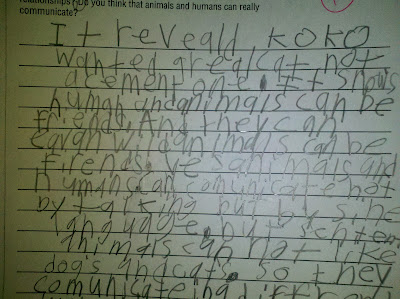 relationships? Do you think that animals and humans can really
communicate?
It reveald KoKo
wanted areal cat not
acement one. It shows
human andanimals can be
friends. And they can
wild animals can be
firends. yes animals and
humans can comunicate not
by talking but by sine
language. but
animals can not like
dogs and cats. So they
comunicate